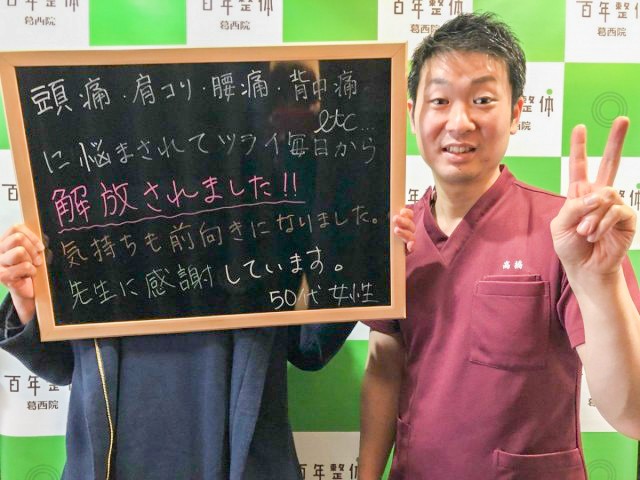 百年整体
葛西院
百年整体
葛西院
百年整体
葛西院
頭痛・肩コリ・腰痛・背中痛
etc...
に悩まされてツライ毎日から
解放されました!!
気持ちも前向きになりました。
先生に感謝しています。
50代 女性
高橋
整体
院
百年整体
葛西院
百年整体